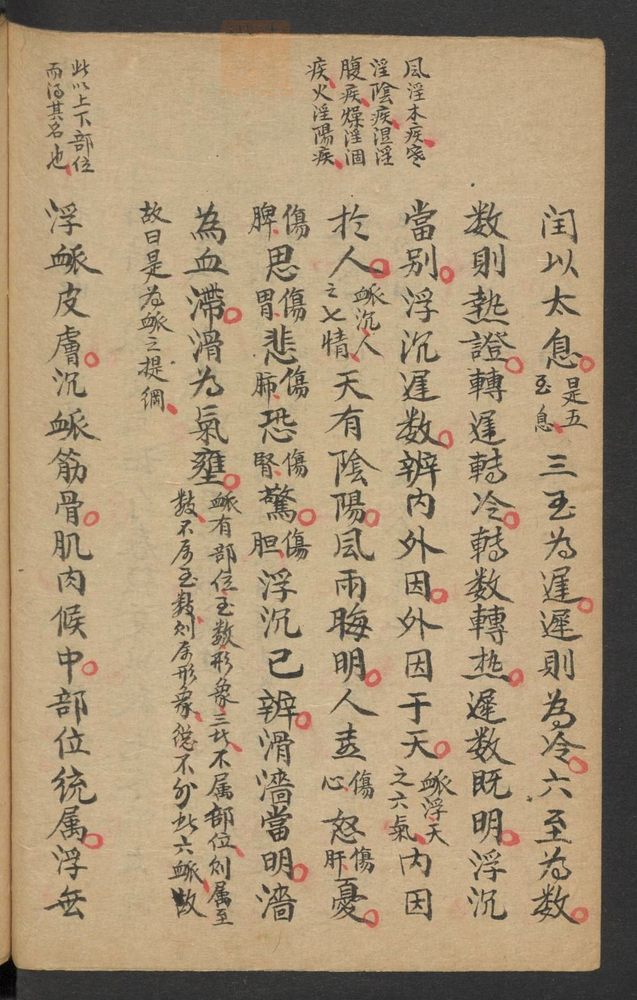 風淫木疾寒
淫陰疾濕淫
腹疾燥淫涸
疾火淫陽疾
此以上下部位
而得其名也
闰以太息是五至息三至為遲遲則為冷六至為数
数則熱證轉遲轉冷轉数轉热遲数既明浮沉
當别浮沉遲数辨内外因外因于天脈浮天之六氣内因
於人脈沉人之七情天有陰陽風雨晦明人喜傷心怒傷肝憂
傷脾思傷胃悲傷肺恐傷腎驚傷胆浮沉已辨滑濇當明濇
為血滯滑為氣壅脈有部位至数形象三者不属部位则属至
数不属至数则属形象總不外此六脈故
故曰是為脈之提綱
浮脈皮膚沉脈筋骨肌肉候中部位统属浮無